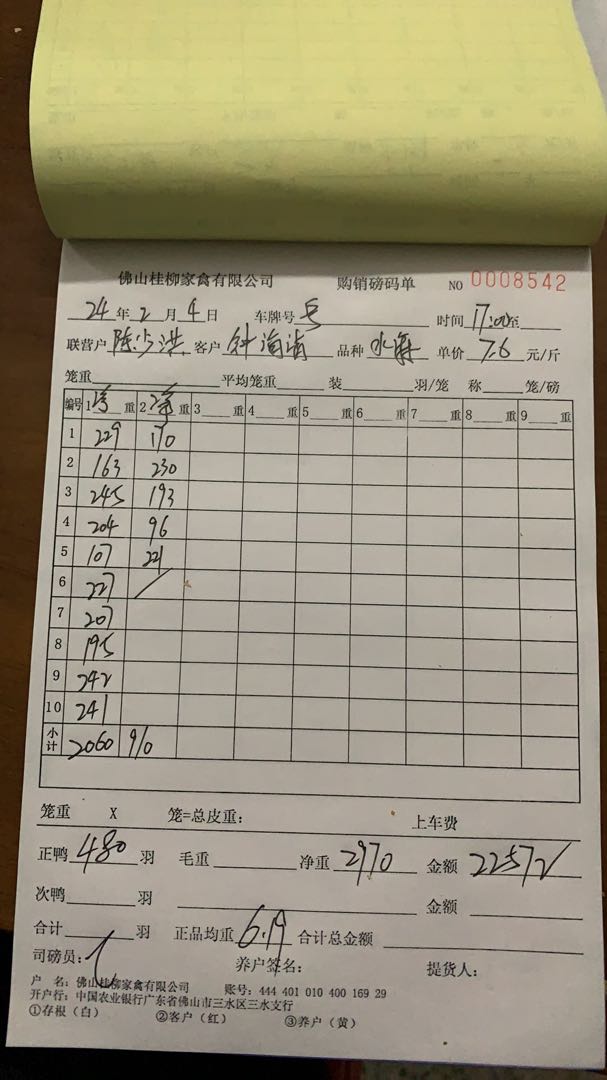 佛山桂柳家禽有限公司 购销磅码单 NO 0008542
24年2月4日 车牌号 时间17:00至
联营户 陈少洪 客户 品种 水 单价 7.6 元/斤
笼重 平均笼重 装 羽/笼 称 笼/磅
编号 1净重 2净重 3 重 4 重 5 重 6 重 7 重 8 重 9 重
1 229 170
2 163 230
3 245 193
4 204 96
5 107 221
6 227 /
7 207
8 195
9 242
10 241
小计 2060 910
笼重 X 笼=总皮重: 上车费
正鸭 480 羽 毛重 净重 2970 金额 22572
次鸭 羽 金额
合计 羽 正品均重 6.19 合计总金额
司磅员: 养户签名: 提货人:
户 名: 佛山桂柳家禽有限公司 账号: 444 401 010 400 169 29
开户行: 中国农业银行广东省佛山市三水区三水支行
①存根（白） ②客户（红） ③养户（黄）